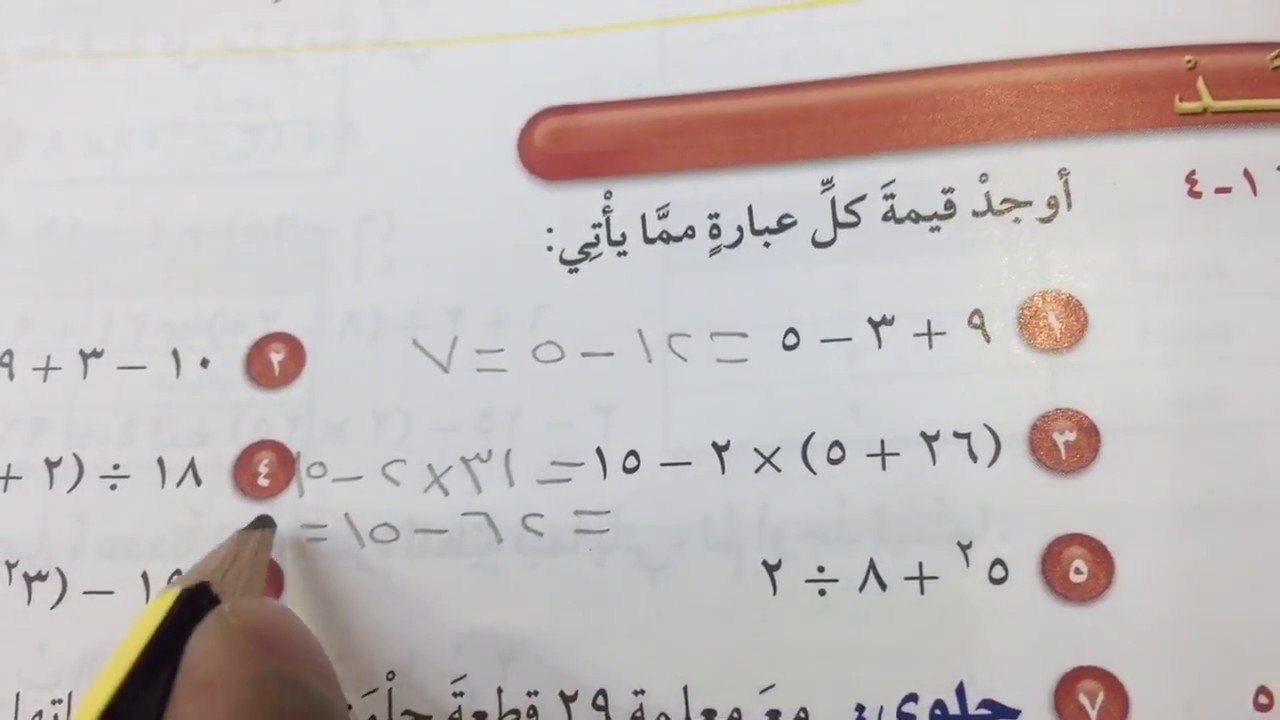 ـــدْ
١-٤
أوجدْ قيمةَ كلِّ عبارةٍ ممَّا يأْتِي:
١ ٩ + ٣ − ٥ = ١٢ − ٥ = ٧
٢ ١٠ − ٣ + ٩
٣ (٢٦ + ٥) × ٢ − ١٥ = ٣١ × ٢ − ١٥
= ٦٢ − ١٥ =
٤ ١٨ ÷ (٢ +
٥ ٥² + ٨ ÷ ٢
− (٣²
٥
٧ حلوى: معَ معلمة ٢٩ قطعةَ